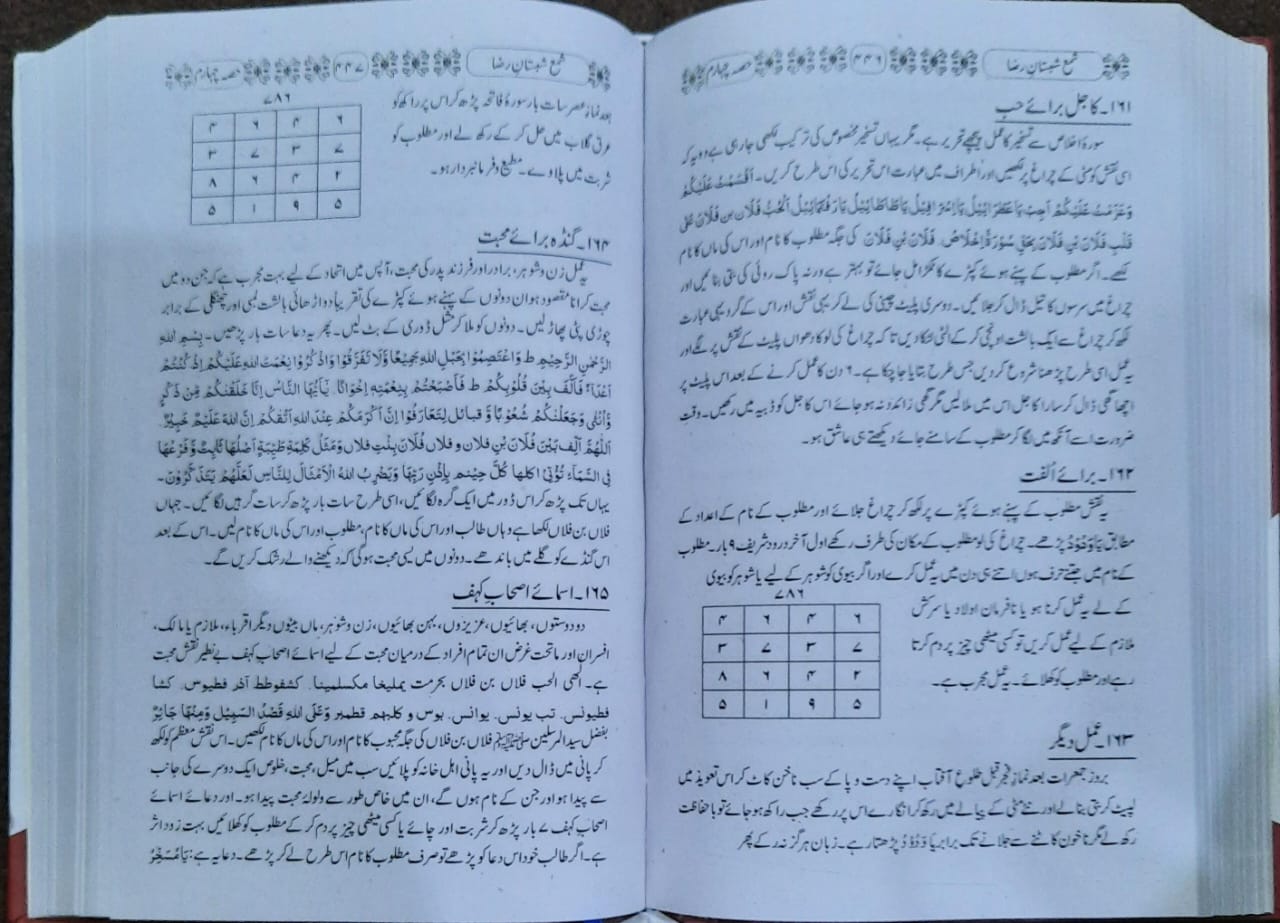 شمع شبستانِ رضا ۴۴۶ حصہ چہارم
۱۶۱۔ کاجل برائے حب
سورۂ اخلاص سے تسخیر کا عمل پیچھے تحریر ہے۔ مگر یہاں تسخیر مخصوص کی ترکیب لکھی جا رہی ہے وہ یہ کہ
اسی نقش کو مٹی کے چراغ پر لکھیں اور اطراف میں عبارت اس تحریر کی اس طرح کریں۔ اَقْسَمْتُ عَلَیْکُمْ
وَعَزَمْتُ عَلَیْکُمْ اَجِبْ یَا عَطْرَائِیْلُ یَا اِسْرَافِیْلُ یَا طَاطَائِیْلُ یَا رَفْتَمَائِیْلُ اَلْحُبُّ فُلَان بن فُلَان عَلٰی
قَلْبِ فُلَان بْنِ فُلَان بِحَقِّ سُوْرَۃُ اِخْلَاصْ۔ فُلَان بْنِ فُلَان کی جگہ مطلوب کا نام اور اس کی ماں کا نام
لکھے۔ اگر مطلوب کے پہنے ہوئے کپڑے کا ٹکڑا مل جائے تو بہتر ہے ورنہ پاک روئی کی بتی بنائیں اور
چراغ میں سرسوں کا تیل ڈال کر جلائیں۔ دوسری پلیٹ چینی کی لے کر یہی نقش اور اس کے گرد یہی عبارت
لکھ کر چراغ سے ایک بالشت اونچی کر کے الٹی لٹکا دیں تا کہ چراغ کی لو کا دھواں پلیٹ کے نقش پر لگے اور
یہ عمل اسی طرح پڑھنا شروع کر دیں جس طرح بتایا جا چکا ہے۔ ۶ دن کا عمل کرنے کے بعد اس پلیٹ پر
اچھا گھی ڈال کر سارا کاجل اس میں ملا لیں مگر گھی زائد نہ ہو جائے اس کاجل کو ڈبیہ میں رکھیں۔ وقتِ
ضرورت اسے آنکھ میں لگا کر مطلوب کے سامنے جائے دیکھتے ہی عاشق ہو۔
۱۶۲۔ برائے اُلفت
یہ نقش مطلوب کے پہنے ہوئے کپڑے پر لکھ کر چراغ جلائے اور مطلوب کے نام کے اعداد کے
مطابق یَاوَدُوْدُ پڑھے۔ چراغ کی لو مطلوب کے مکان کی طرف رکھے اول آخر درود شریف ۹ بار۔ مطلوب
کے نام میں جتنے حرف ہوں اتنے ہی دن میں یہ عمل کرے اور اگر بیوی کو شوہر کے لیے یا شوہر کو بیوی
کے لے یہ عمل کرنا ہو یا نافرمان اولاد یا سرکش
ملازم کے لیے عمل کریں تو کسی میٹھی چیز پر دم کرتا
رہے اور مطلوب کو کھلائے۔ یہ عمل مجرب ہے۔
۷۸۶
۴ ۶ ۴ ۶
۳ ۷ ۳ ۷
۸ ۶ ۴ ۲
۵ ۱ ۹ ۵
۱۶۳۔ عمل دیگر
بروز جمعرات بعد نمازِ فجر قبل طلوع آفتاب اپنے دست و پا کے سب ناخن کاٹ کر اس تعویذ میں
لپیٹ کر بتی بنا لے اور نئے مٹی کے پیالے میں رکھ کر انگارے اس پر رکھے جب راکھ ہو جائے تو باحفاظت
رکھ لے مگر ناخون کاٹنے سے جلانے تک برابر یَا وَدُوْدُ پڑھتا رہے۔ زبان ہرگز نہ رکے پھر
شمع شبستانِ رضا ۴۴۷ حصہ چہارم
بعد نمازِ عصر سات بار سورۂ فاتحہ پڑھ کر اس پر راکھ کو
عرق گلاب میں حل کر کے رکھ لے اور مطلوب کو
شربت میں پلا دے۔ مطیع و فرمانبردار ہو۔
۷۸۶
۴ ۶ ۴ ۶
۳ ۷ ۳ ۷
۸ ۶ ۴ ۲
۵ ۱ ۹ ۵
۱۶۴۔ گنڈہ برائے محبت
یہ عمل زن و شوہر، برادر اور فرزند پدر کی محبت، آپس میں اتحاد کے لیے بہت مجرب ہے کہ جن دو میں
محبت کرانا مقصود ہو ان دونوں کے پہنے ہوئے کپڑے کی تقریباً دو اڑھائی بالشت لمبی اور چھنگلی کے برابر
چوڑی پٹی پھاڑ لیں۔ دونوں کو ملا کر مثل ڈوری کے بٹ لیں۔ پھر یہ دعا سات بار پڑھیں۔ بِسْمِ اللہِ
الرَّحْمٰنِ الرَّحِیْمِ ط وَاعْتَصِمُوْا بِحَبْلِ اللہِ جَمِیْعًا وَّلَا تَفَرَّقُوْا وَاذْکُرُوْا نِعْمَتَ اللہِ عَلَیْکُمْ اِذْ کُنْتُمْ
اَعْدَآءً فَاَلَّفَ بَیْنَ قُلُوْبِکُمْ ط فَاَصْبَحْتُمْ بِنِعْمَتِہٖ اِخْوَانًا۔ یٰاَیُّھَا النَّاسُ اِنَّا خَلَقْنٰکُمْ مِنْ ذَکَرٍ
وَّاُنْثٰی وَجَعَلْنٰکُمْ شُعُوْبًا وَّ قَبَائِلَ لِتَعَارَفُوْا اِنَّ اَکْرَمَکُمْ عِنْدَ اللہِ اَتْقٰکُمْ اِنَّ اللہَ عَلِیْمٌ خَبِیْرٌ۔
اَللّٰھُمَّ اَلِّفْ بَیْنَ فُلَانِ بْنِ فلان و فلاں فُلَان بِنْتِ فلان وَمَثَلُ کَلِمَۃٍ طَیِّبَۃٍ اَصْلُھَا ثَابِتٌ وَّ فَرْعُھَا
فِی السَّمَآءِ تُؤْتِیْ اُکلھا کُلَّ حِیْنٍم بِاِذْنِ رَبِّھَا وَیَضْرِبُ اللہُ الْاَمْثَالَ لِلنَّاسِ لَعَلَّھُمْ یَتَذَکَّرُوْنَ۔
یہاں تک پڑھ کر اس ڈور میں ایک گرہ لگائیں، اسی طرح سات بار پڑھ کر سات گرہیں لگائیں۔ جہاں
فلاں بن فلاں لکھا ہے وہاں طالب اور اس کی ماں کا نام، مطلوب اور اس کی ماں کا نام لیں۔ اس کے بعد
اس گنڈے کو گلے میں باندھے۔ دونوں میں ایسی محبت ہو گی کہ دیکھنے والے رشک کریں گے۔
۱۶۵۔ اسمائے اصحابِ کہف
دو دوستوں، بھائیوں، عزیزوں، بہن بھائیوں، زن و شوہر، ماں بیٹوں دیگر اقرباء، ملازم یا مالک،
افسران اور ماتحت غرض ان تمام افراد کے درمیان محبت کے لیے اسمائے اصحاب کہف بے نظیر نقش محبت
ہے۔ الٰھی الحب فلاں بن فلاں بحرمت یملیخا مکسلمینا۔ کشفوطط آذر فطیوس۔ کشا
فطیونس۔ تب یونس۔ یوانس۔ بوس و کلبہم قطمیر وَعَلَی اللہِ قَصْدُ السَّبِیْلِ وَمِنْھَا جَائِرٌ
بفضل سید المرسلین ﷺ فلاں بن فلاں کی جگہ محبوب کا نام اور اس کی ماں کا نام لکھیں۔ اس نقش معظم کو لکھ
کر پانی میں ڈال دیں اور یہ پانی اہل خانہ کو پلائیں سب میں میل، محبت، خلوص ایک دوسرے کی جانب
سے پیدا ہو اور جن کے نام ہوں گے، ان میں خاص طور سے ولولہ محبت پیدا ہو۔ اور دعائے اسمائے
اصحاب کہف ۷ بار پڑھ کر شربت اور چائے یا کسی میٹھی چیز پر دم کر کے مطلوب کو کھلائیں بہت زود اثر
ہے۔ اگر طالب خود اس دعا کو پڑھے تو صرف مطلوب کا نام اس طرح لے کر پڑھے۔ دعا یہ ہے: یَامُسَخِّرُ